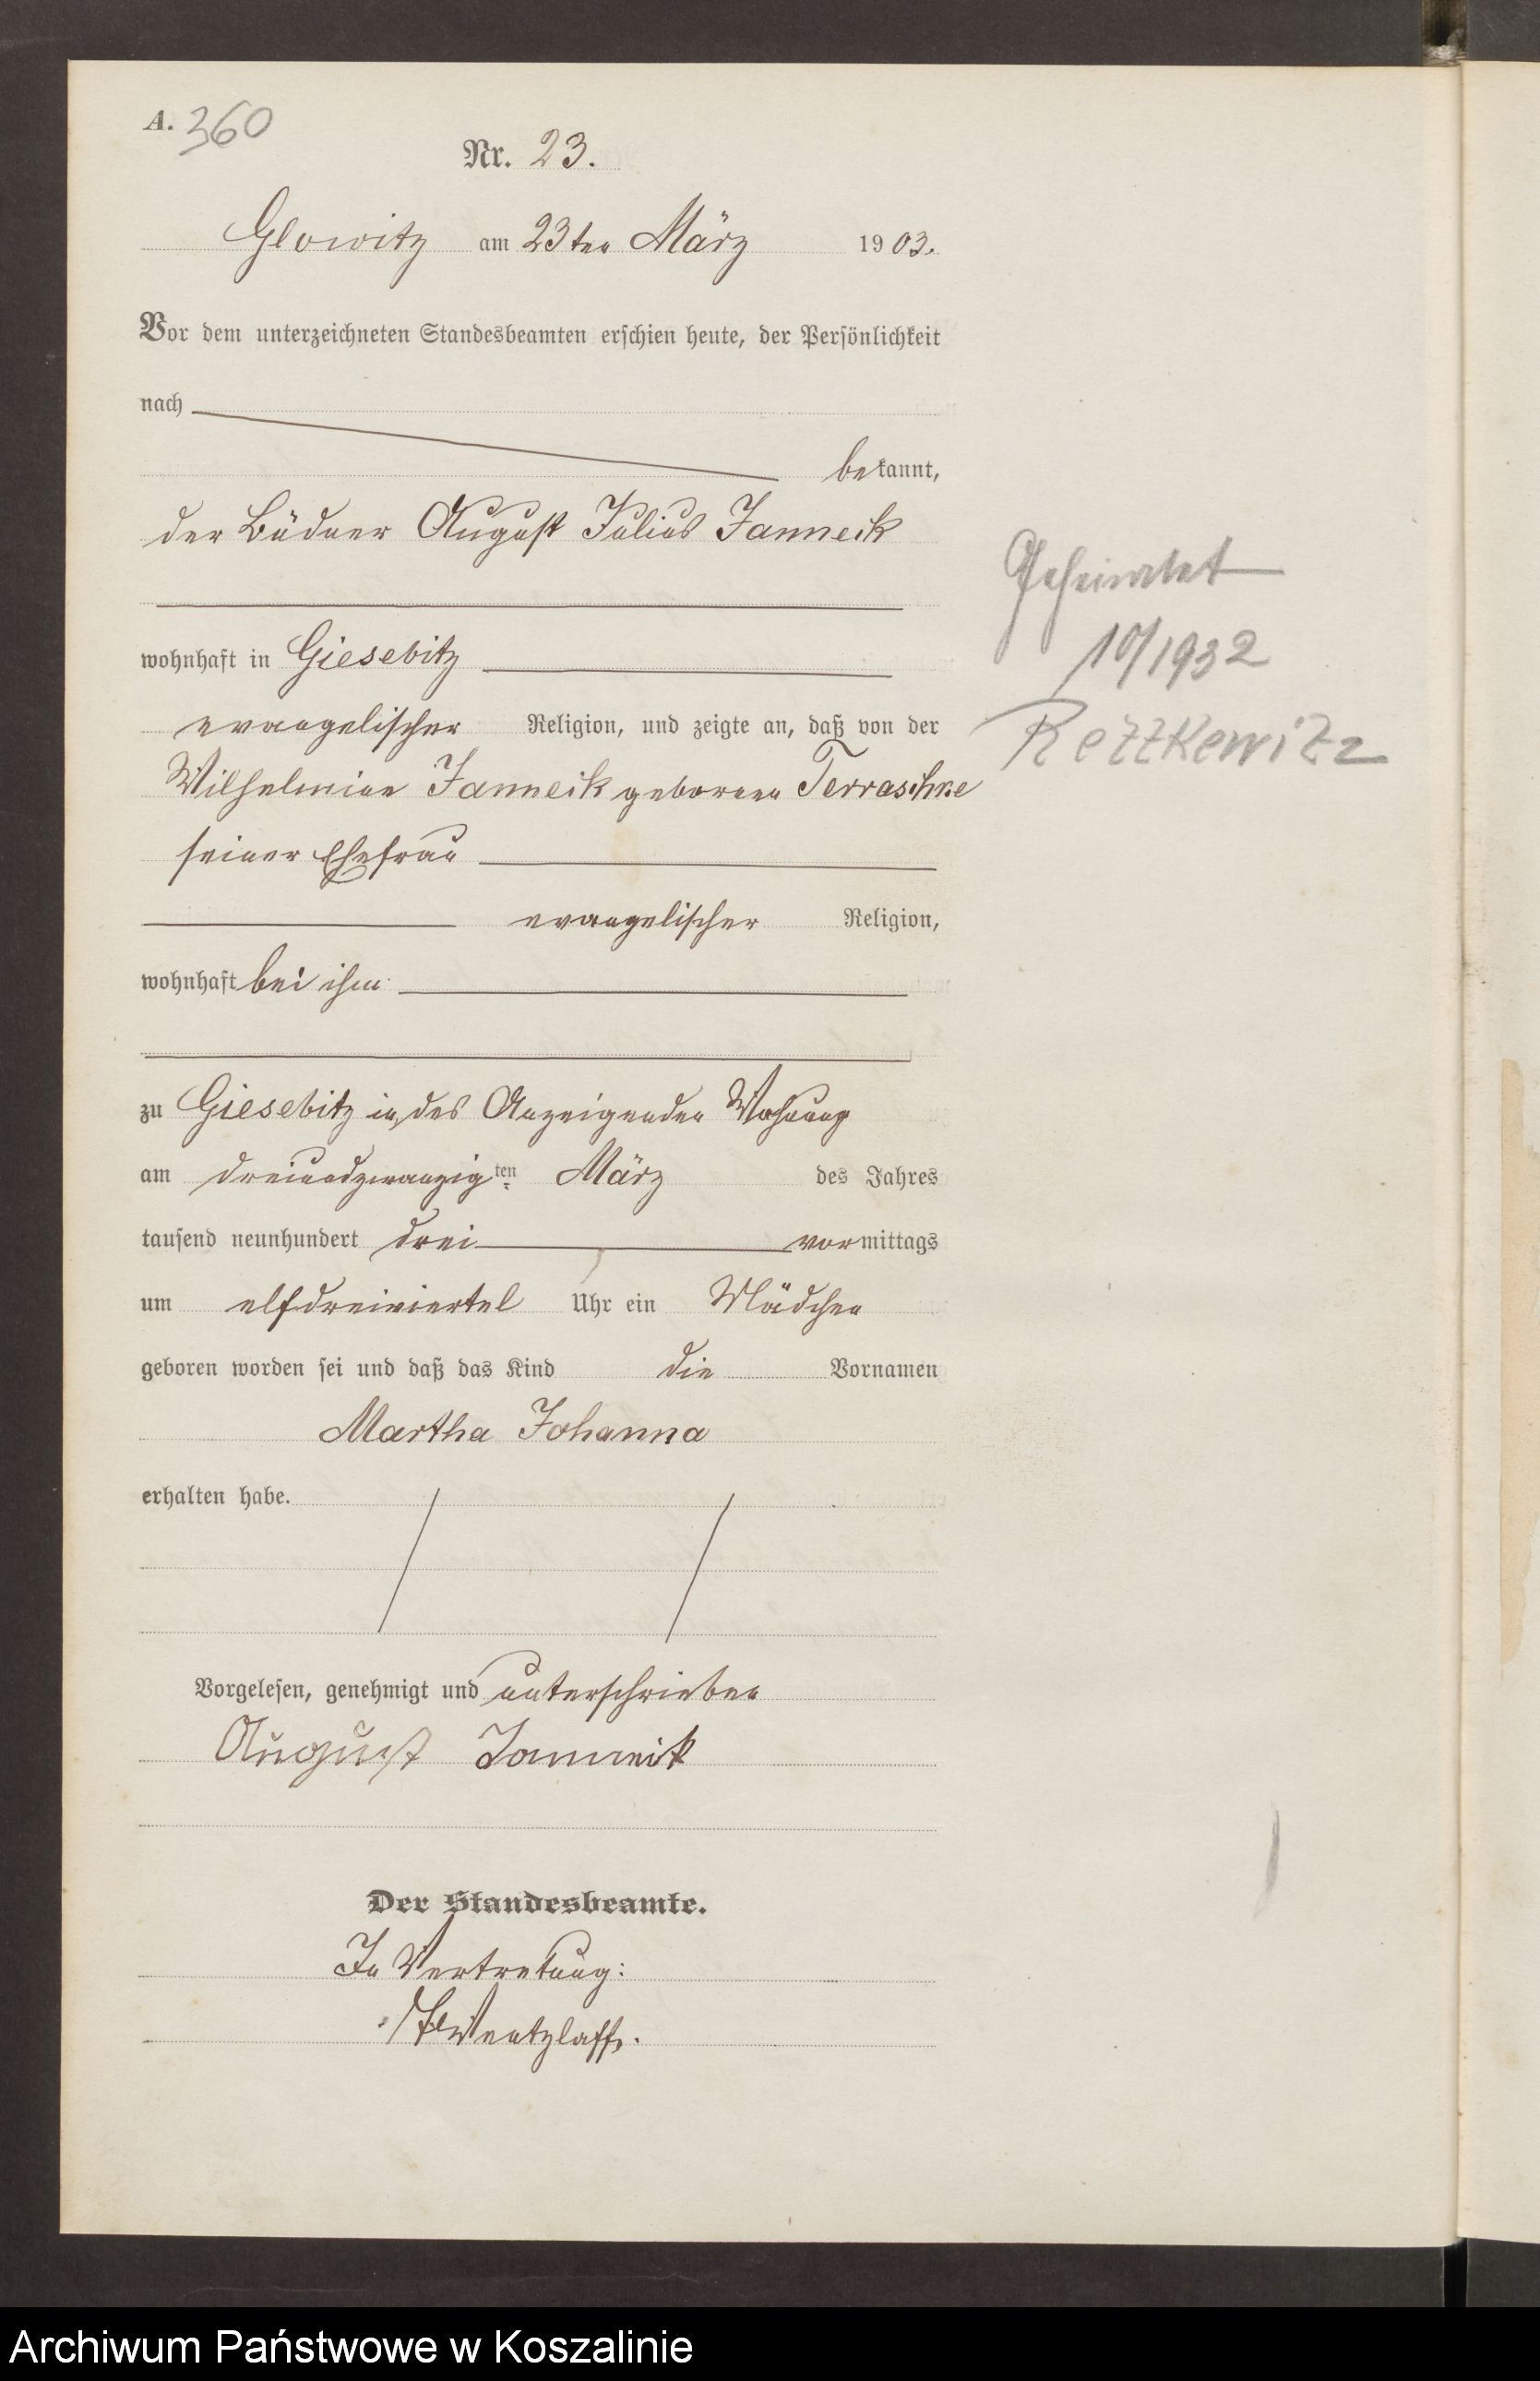 A. 360
Nr. 23.
Glowitz am 23ten März 1903.
Vor dem unterzeichneten Standesbeamten erschien heute, der Persönlichkeit
nach
bekannt,
der Büdner August Julius Janneck
wohnhaft in Giesebitz
evangelischer Religion, und zeigte an, daß von der
Wilhelmine Janneck geborenen Terraschke
seiner Ehefrau
evangelischer Religion,
wohnhaft bei ihm
zu Giesebitz in des Anzeigenden Wohnung
am dreiundzwanzigten März des Jahres
tausend neunhundert drei vormittags
um elfdreiviertel Uhr ein Mädchen
geboren worden sei und daß das Kind die Vornamen
Martha Johanna
erhalten habe.
Vorgelesen, genehmigt und unterschrieben
August Janneck
Der Standesbeamte.
In Vertretung:
Wentzlaff.
Geheiratet
10/1932
Rettkewitz
Archiwum Państwowe w Koszalinie